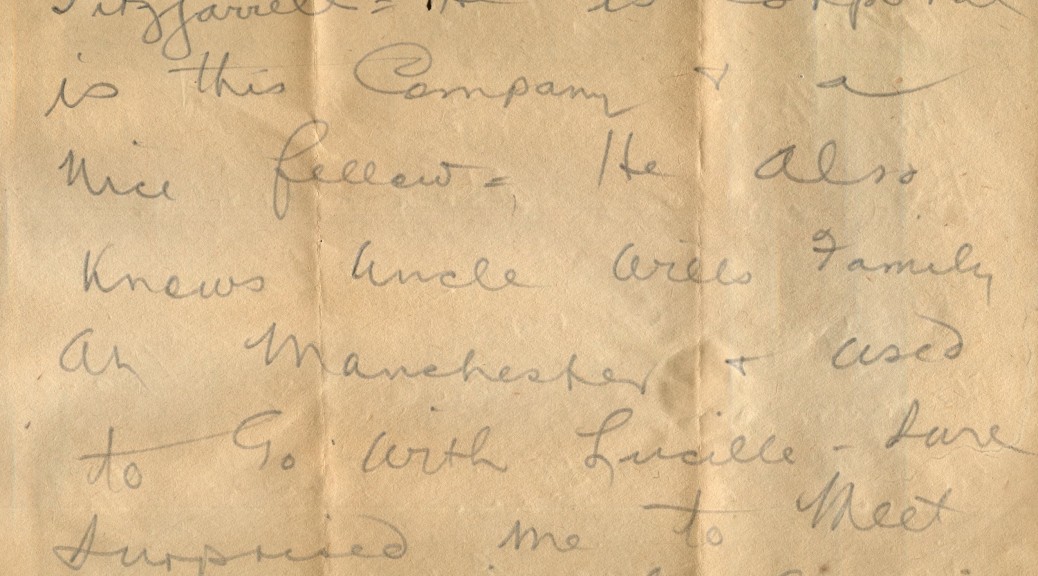 Fitzjarrell = He is Corporal
is this Company + a
Nice fellow = He Also
Knows Uncle Wills Family
an Manchester + used
to Go with Lucille - Sure
surprised me to Meet